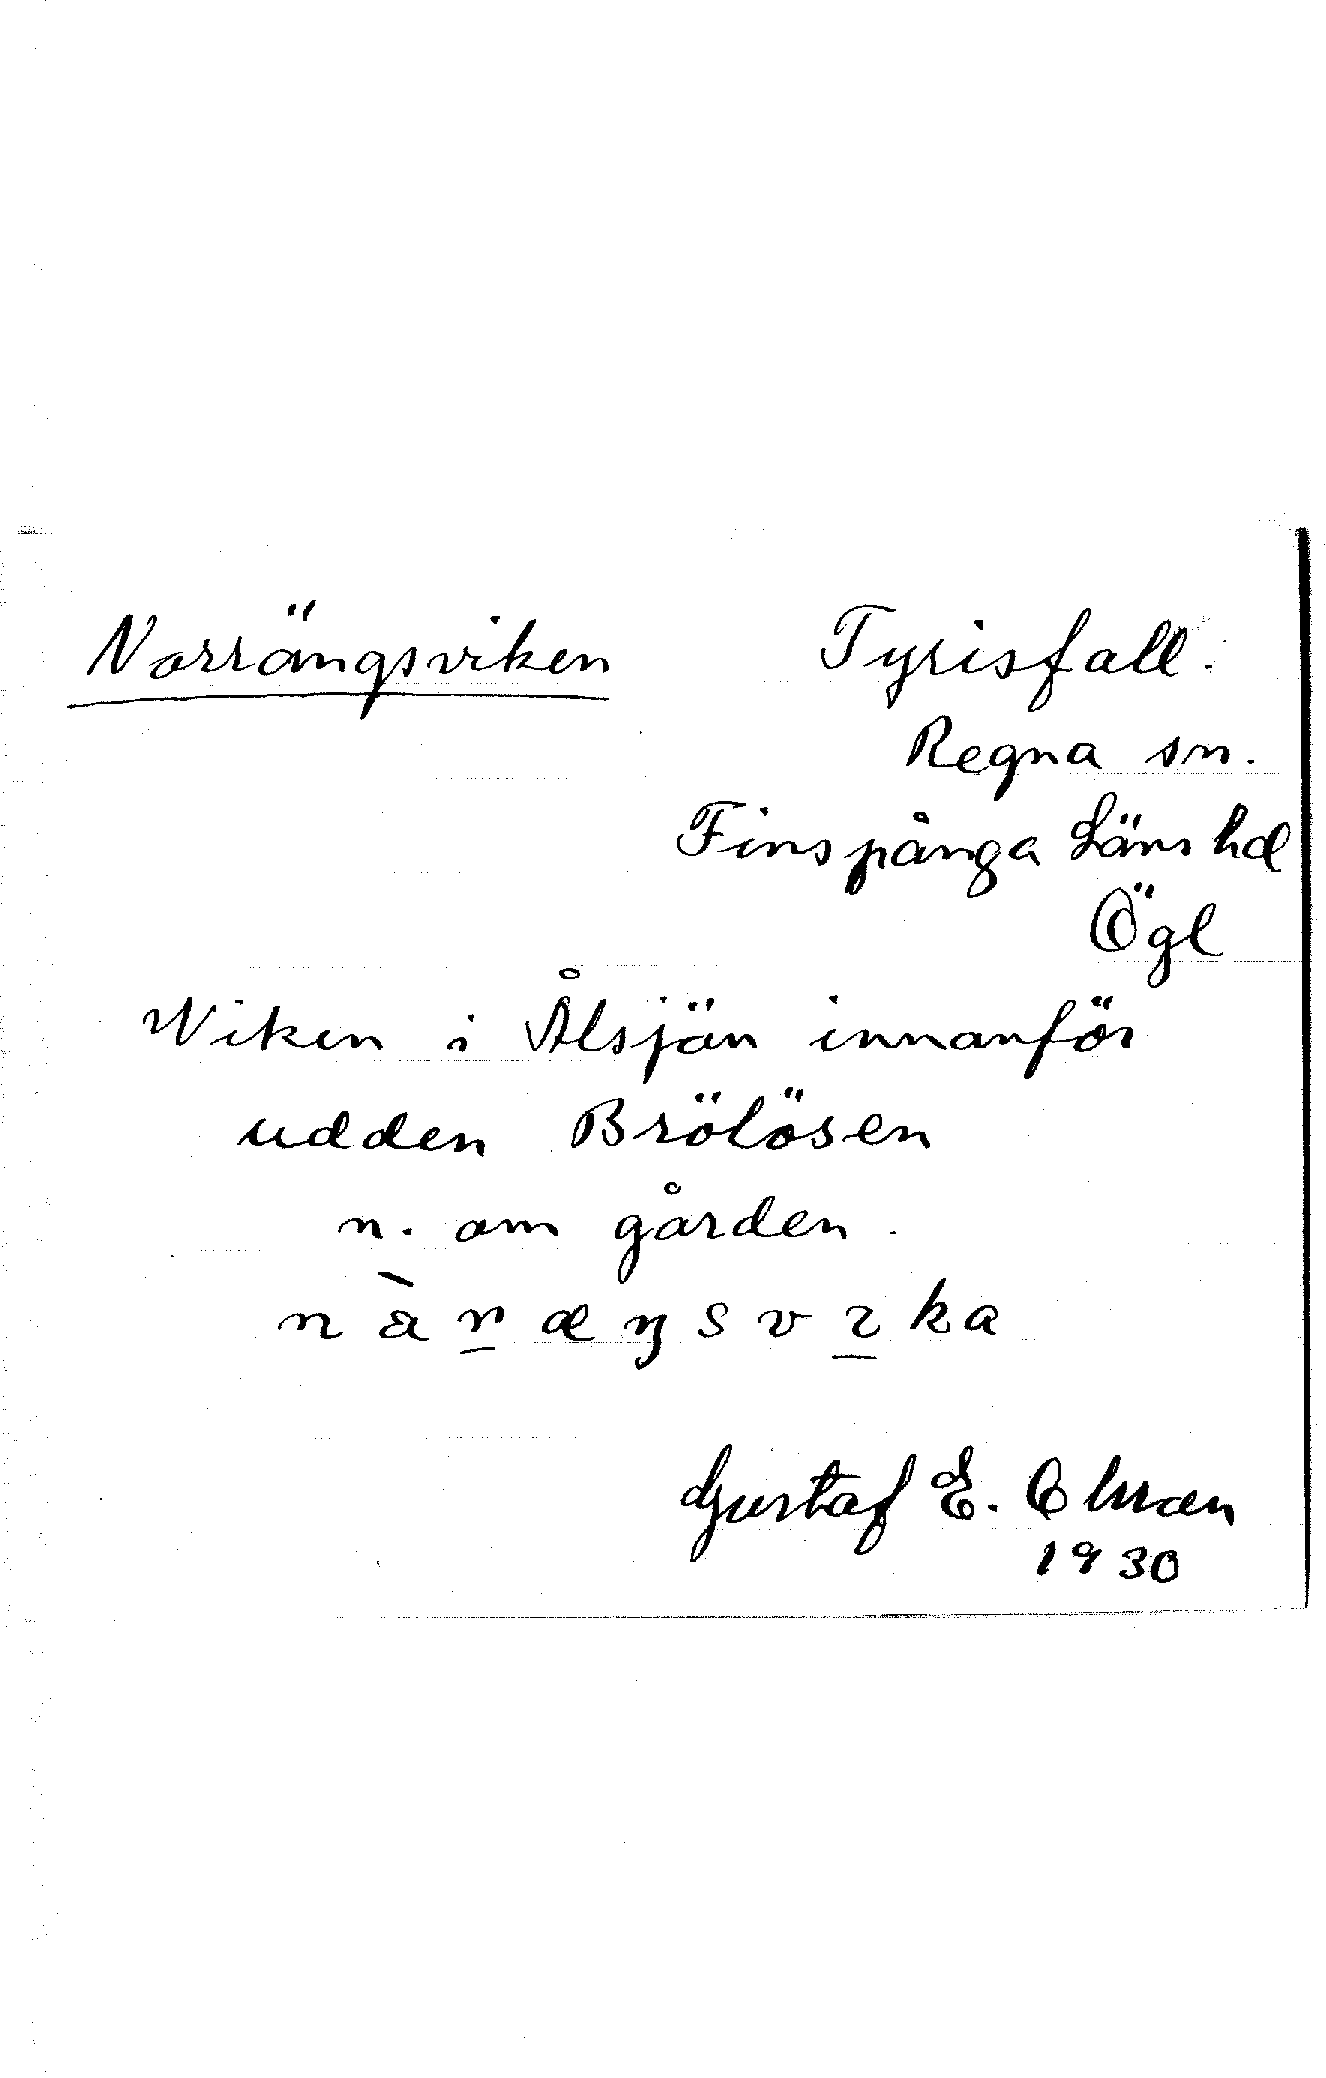 Norrängsviken
Tyrisfall.
Regna sn.
Finspånga Läns hd
Ögl
Wiken i Ålsjön innanför
udden Brölösen
n. om gården.
Gustaf E.
1930